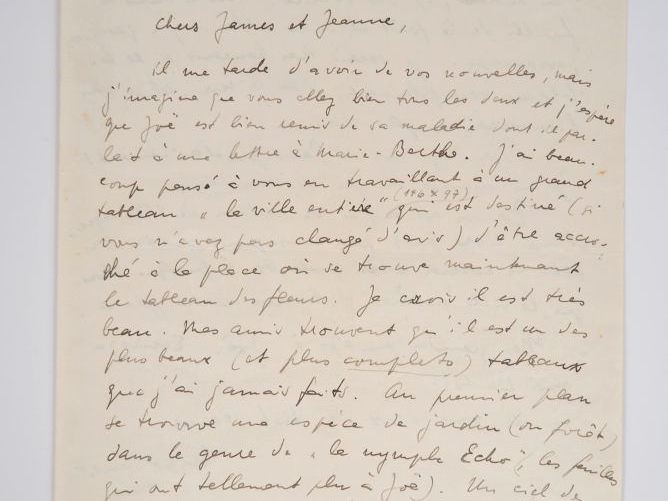 Chers James et Jeanne,
il me tarde d'avoir de vos nouvelles, mais
j'imagine que vous allez bien tous les deux et j'espère
que Joë est bien remis de sa maladie dont il par-
le à une lettre à Marie-Berthe. J'ai beau-
coup pensé à vous en travaillant à un grand
(146 x 97)
tableau "la ville entière" qui est destiné (si
vous n'avez pas changé d'avis) d'être accro-
ché à la place où se trouve maintenant
le tableau des fleurs. Je crois il est très
beau. Mes amis trouvent qu'il est un des
plus beaux (et plus complets) tableaux
que j'ai jamais faits. Au premier plan
se trouve une espèce de jardin (ou forêt)
dans le genre de "la nymphe Echo", les feuilles
qui ont tellement plu à Joë). Un ciel de